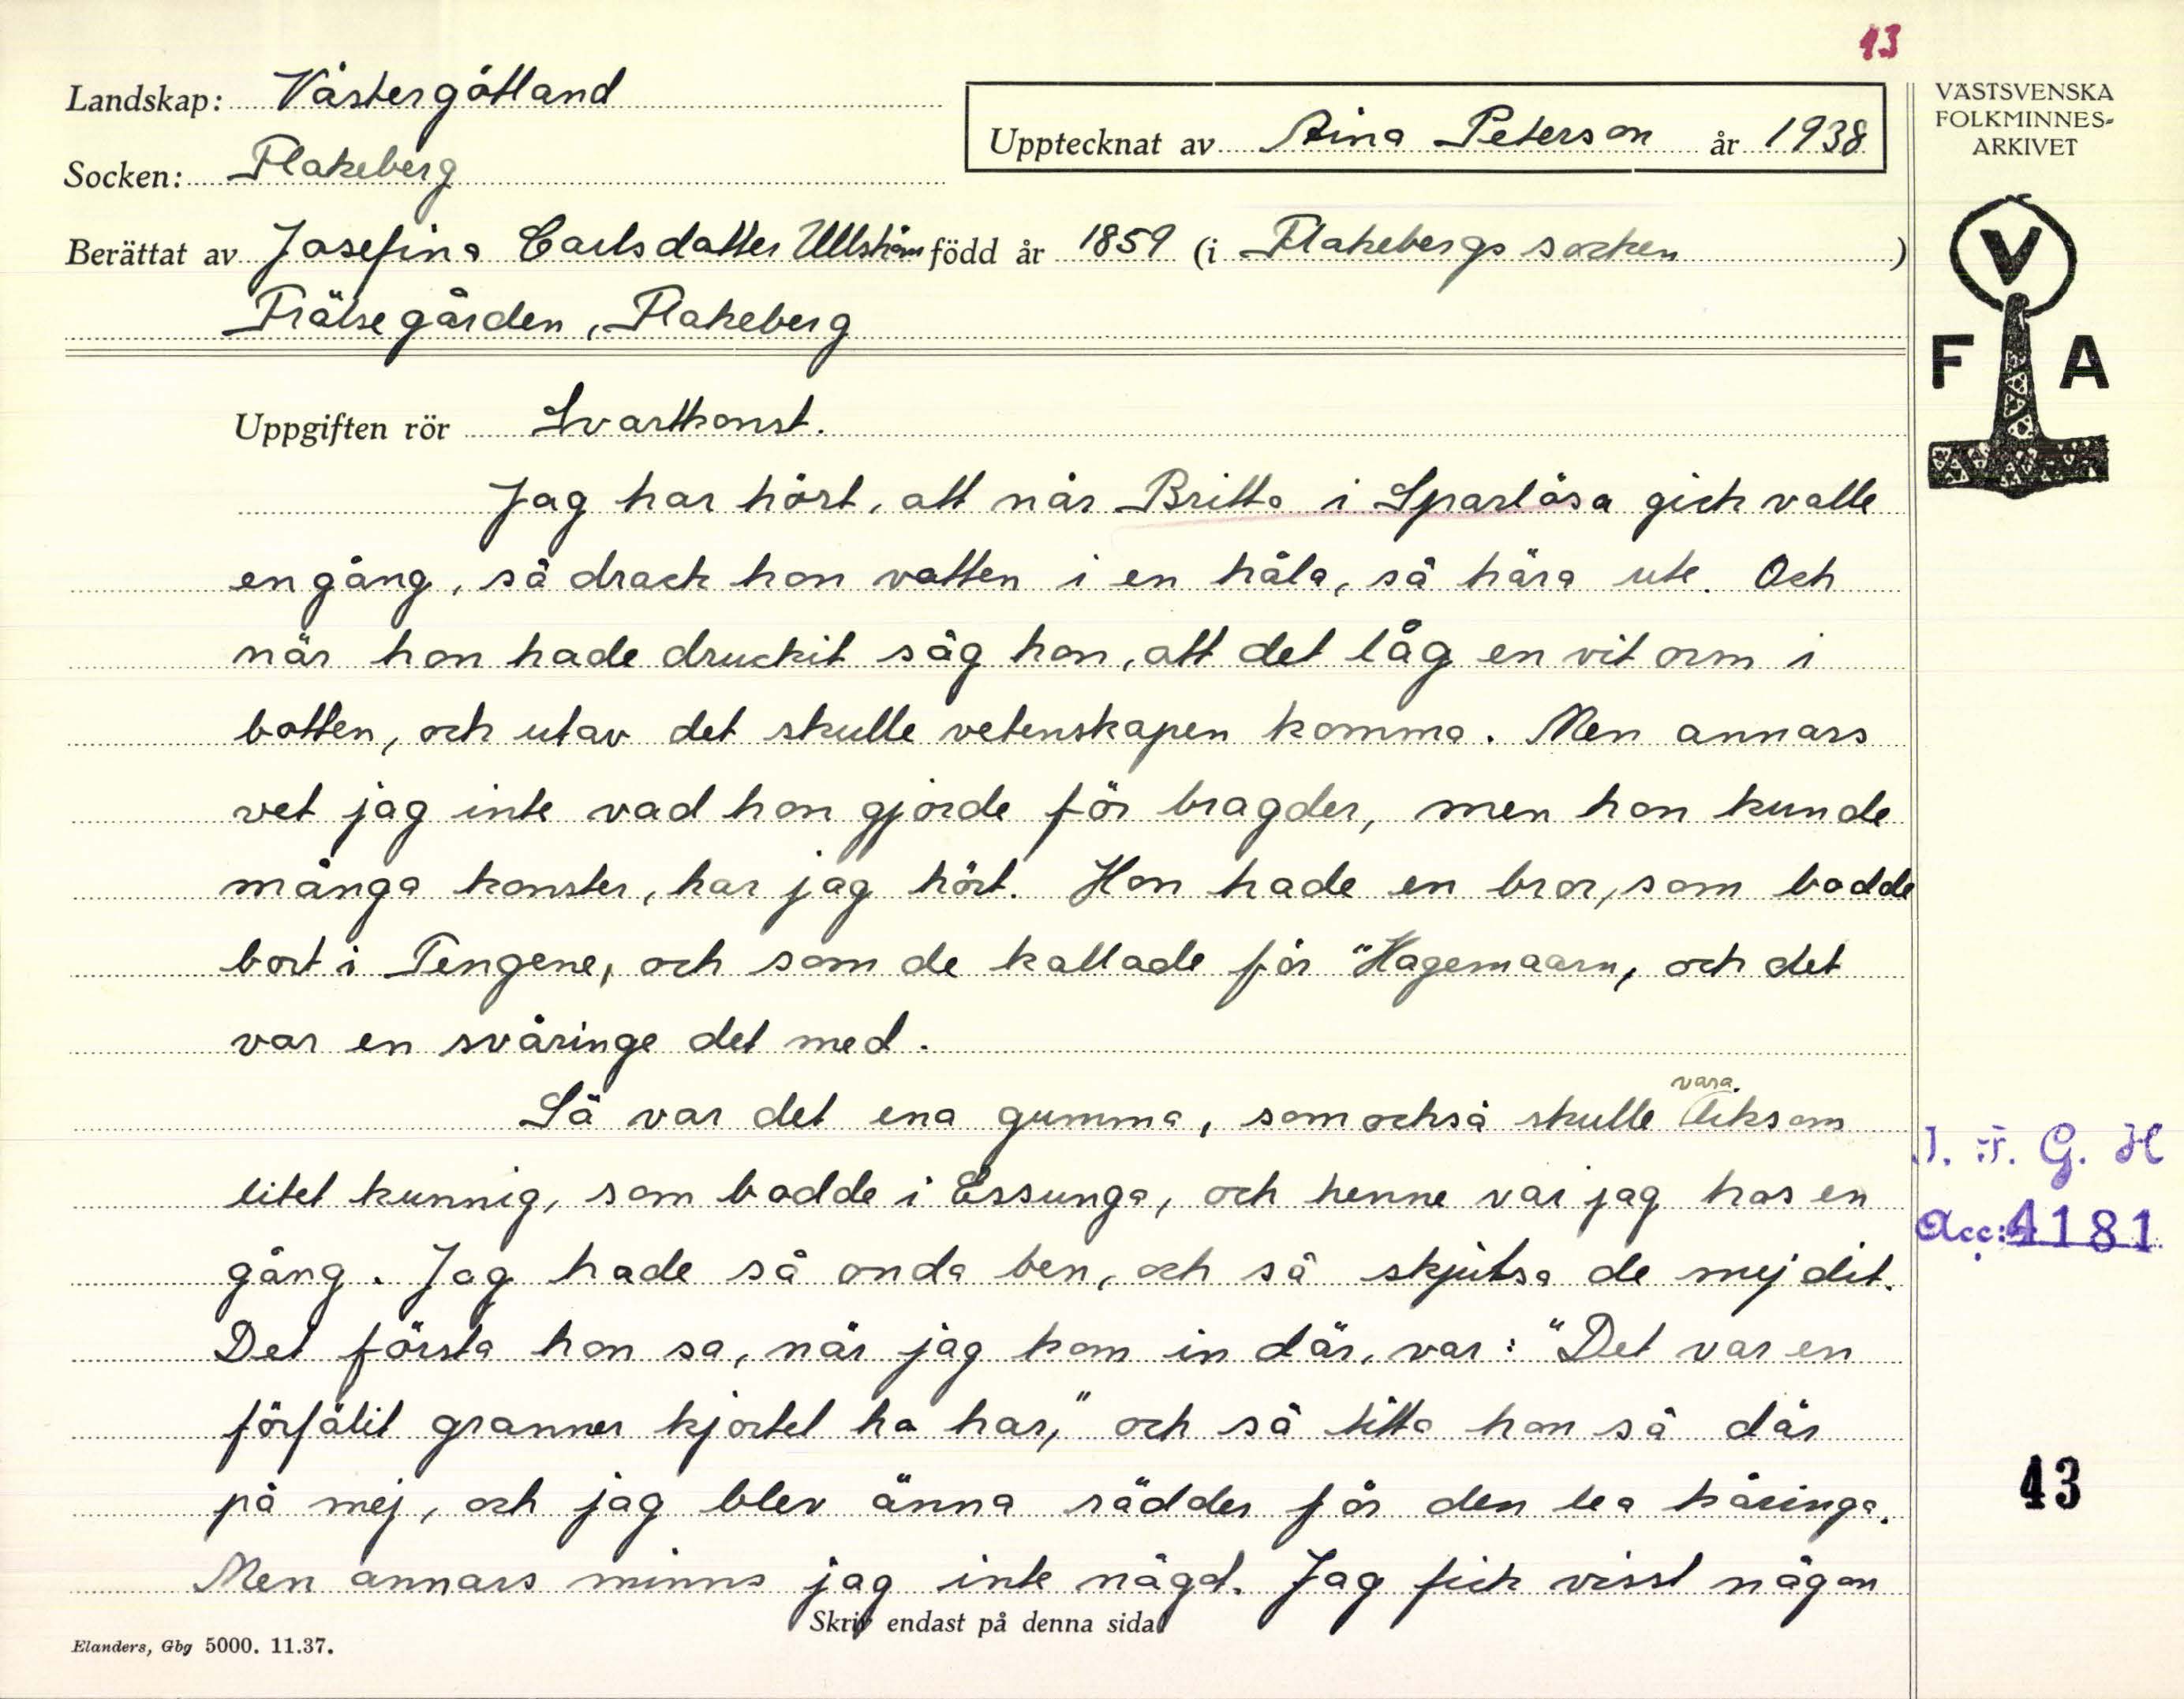 13
Landskap: Västergötland
Upptecknat av Aina Peterson år 1938
VÄSTSVENSKA
FOLKMINNES-
ARKIVET
Socken: Flakeberg
Berättat av Josefina Carlsdatter Ullström född år 1859 (i Flakebergs socken)
Frälsegården, Flakeberg
V
F A
Uppgiften rör Svartkonst.
Jag har hört, att när Britta i Sparlösa gick valle
en gång, så drack hon vatten i en håla, så hära ute. Och
när hon hade druckit såg hon, att det låg en vit orm i
botten, och utav det skulle vetenskapen komma. Men annars
vet jag inte vad hon gjorde för bragder, men hon kunde
många konster, har jag hört. Hon hade en bror, som bodde
bort i Tengene, och som de kallade för "Hagemaarn, och det
var en svåringe det med.
Så var det ena gumma, som också skulle vara liksom
litet kunnig, som bodde i Essunga, och henne var jag hos en
gång. Jag hade så onda ben, och så skjutsa de mej dit.
Det första hon sa, när jag kom in där, var: "Det var en
förfälit granner kjortel ha har," och så titta hon så där
på mej, och jag blev änna rädder för den lea käringa.
Men annars minns jag inte någd. Jag fick visst någon
J. F. G. H
Acc: 4181
43
Skriv endast på denna sida
Elanders, Gbg 5000. 11.37.